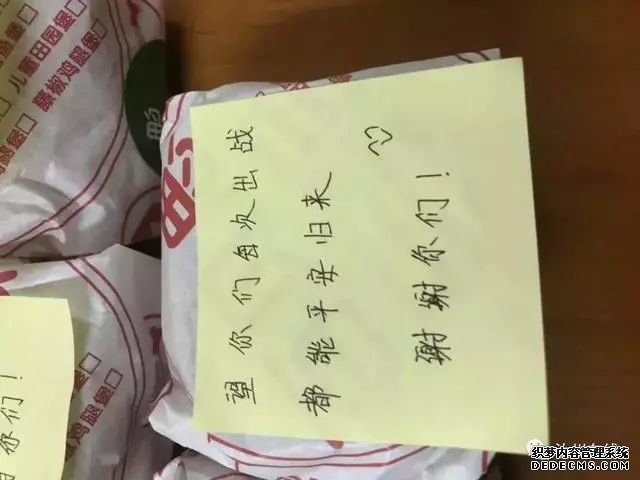 望你们每次出战
都能平安归来
谢谢你们！
你们！
儿童田园堡□
藤椒鸡腿堡□
鸡腿堡□
织梦内容管理系统
DEDECMS.COM